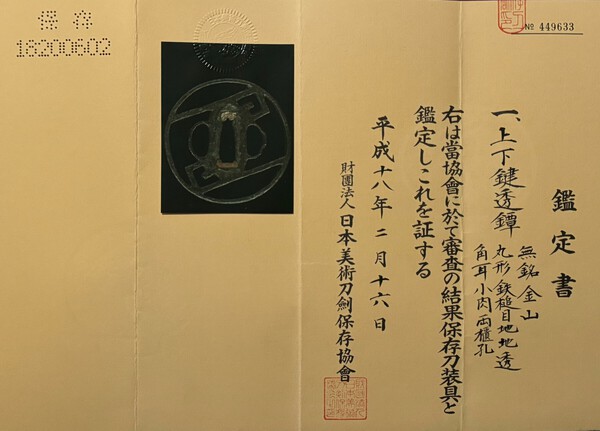 № 449633
鑑定書
一、上下鍵透鐔
無銘 金山
丸形 鉄槌目地 地透
角耳小肉 両櫃孔
右は當協會に於て審査の結果保存刀装具と
鑑定しこれを証する
平成十八年二月十六日
財團法人 日本美術刀劍保存協會
保存
18200602